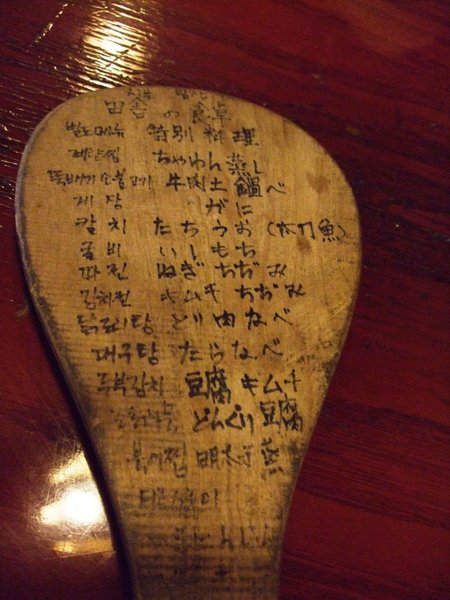 田舎の食卓
별도메뉴 特別料理
계란찜 ちゃわん蒸し
뚝배기소불고기 牛肉土鍋べ
게장 がに
갈치 たちうお (太刀魚)
굴비 いしもち
파전 ねぎちぢみ
김치전 キムチちぢみ
닭도리탕 どり肉なべ
대구탕 たらなべ
두부김치 豆腐キムチ
どんぐり豆腐
북어찜 明太子蒸